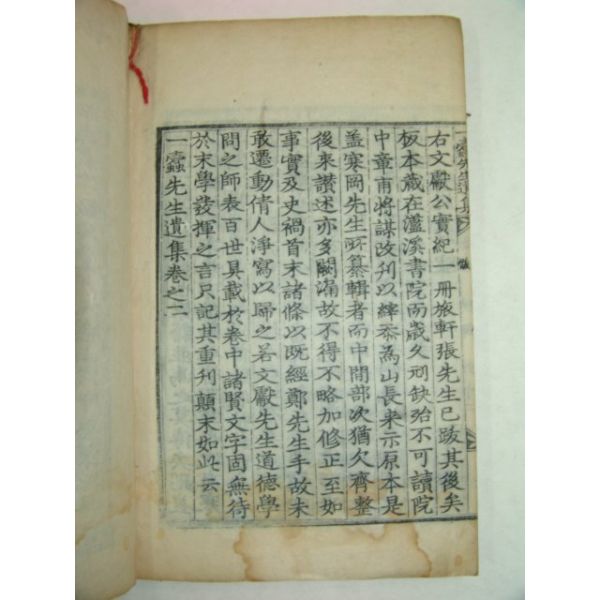 右文獻公實紀一冊旅軒張先生已跋其後矣
板本藏在灆溪書院而歲久刓缺殆不可讀院
中章甫將謀改刊以緯忝為山長來示原本是
盖寒岡先生所纂輯者而中間部次猶欠齊整
後来讃述亦多闕漏故不得不略加修正至如
事實及史禍首末諸條以既經鄭先生手故未
敢遷動倩人淨寫以歸之若文獻先生道德學
問之師表百世具載於卷中諸賢文字固無待
於末學發揮之言只記其重刊顛末如此云
一蠹先生遺集卷之二